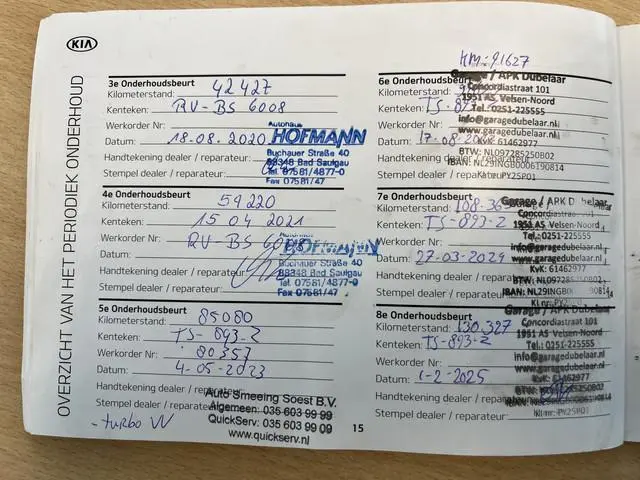 KIA
OVERZICHT VAN HET PERIODIEK ONDERHOUD
3e Onderhoudsbeurt
Kilometerstand: 42427
Kenteken: RV-BS 6008
Werkorder Nr:
Datum: 18-08-2020
Handtekening dealer / reparateur:
Stempel dealer / reparateur:
Autohaus
HOFMANN
Buchauer Straße 40
88348 Bad Saulgau
Tel. 07581/4877-0
Fax 07581/47
4e Onderhoudsbeurt
Kilometerstand: 59220
Kenteken: 15 04 2021
Werkorder Nr: RV-BS 6008
Datum:
Handtekening dealer / reparateur:
Stempel dealer / reparateur:
HOFMANN
Buchauer Straße 40
88348 Bad Saulgau
Tel. 07581/4877-0
Fax 07581/47
5e Onderhoudsbeurt
Kilometerstand: 85080
Kenteken: TS-893-Z
Werkorder Nr: 80357
Datum: 4-05-2023
Handtekening dealer / reparateur:
Stempel dealer / reparateur:
Auto Smeeing Soest B.V.
Algemeen: 035 603 99 99
QuickServ: 035 603 99 09
www.quickserv.nl
- turbo VV
15
KM: 91627
6e Onderhoudsbeurt
Kilometerstand:
Kenteken:
Werkorder Nr:
Datum: 17-08-20
Handtekening dealer / reparateur:
Stempel dealer / reparateur:
Garage / APK Dubelaar
Concordiastraat 101
1951 AS, Velsen-Noord
Tel.: 0251-225555
info@garagedubelaar.nl
KvK: 61462977
BTW: NL097285250B02
IBAN: NL29INGB0006190814
Kl nr: PY25P01
7e Onderhoudsbeurt
Kilometerstand: 108.36
Kenteken: TS-893-Z
Werkorder Nr:
Datum: 27-03-2024
Handtekening dealer / reparateur:
Stempel dealer / reparateur:
Garage / APK Dubelaar
Concordiastraat
1951 AS Velsen-Noord
Tel.: 0251-225555
info@garagedubelaar.nl
KvK: 61462977
BTW: NL097285250B02
IBAN: NL29INGB0006190814
Kl nr:
8e Onderhoudsbeurt
Kilometerstand: 130.327
Kenteken: TS-893-Z
Werkorder Nr:
Datum: 1-2-2025
Handtekening dealer / reparateur:
Stempel dealer / reparateur:
Garage / APK Dubelaar
Concordiastraat 101
1951 AS, Velsen-Noord
Tel.: 0251-225555
info@garagedubelaar.nl
KvK: 61462977
Kl nr: PY25P01